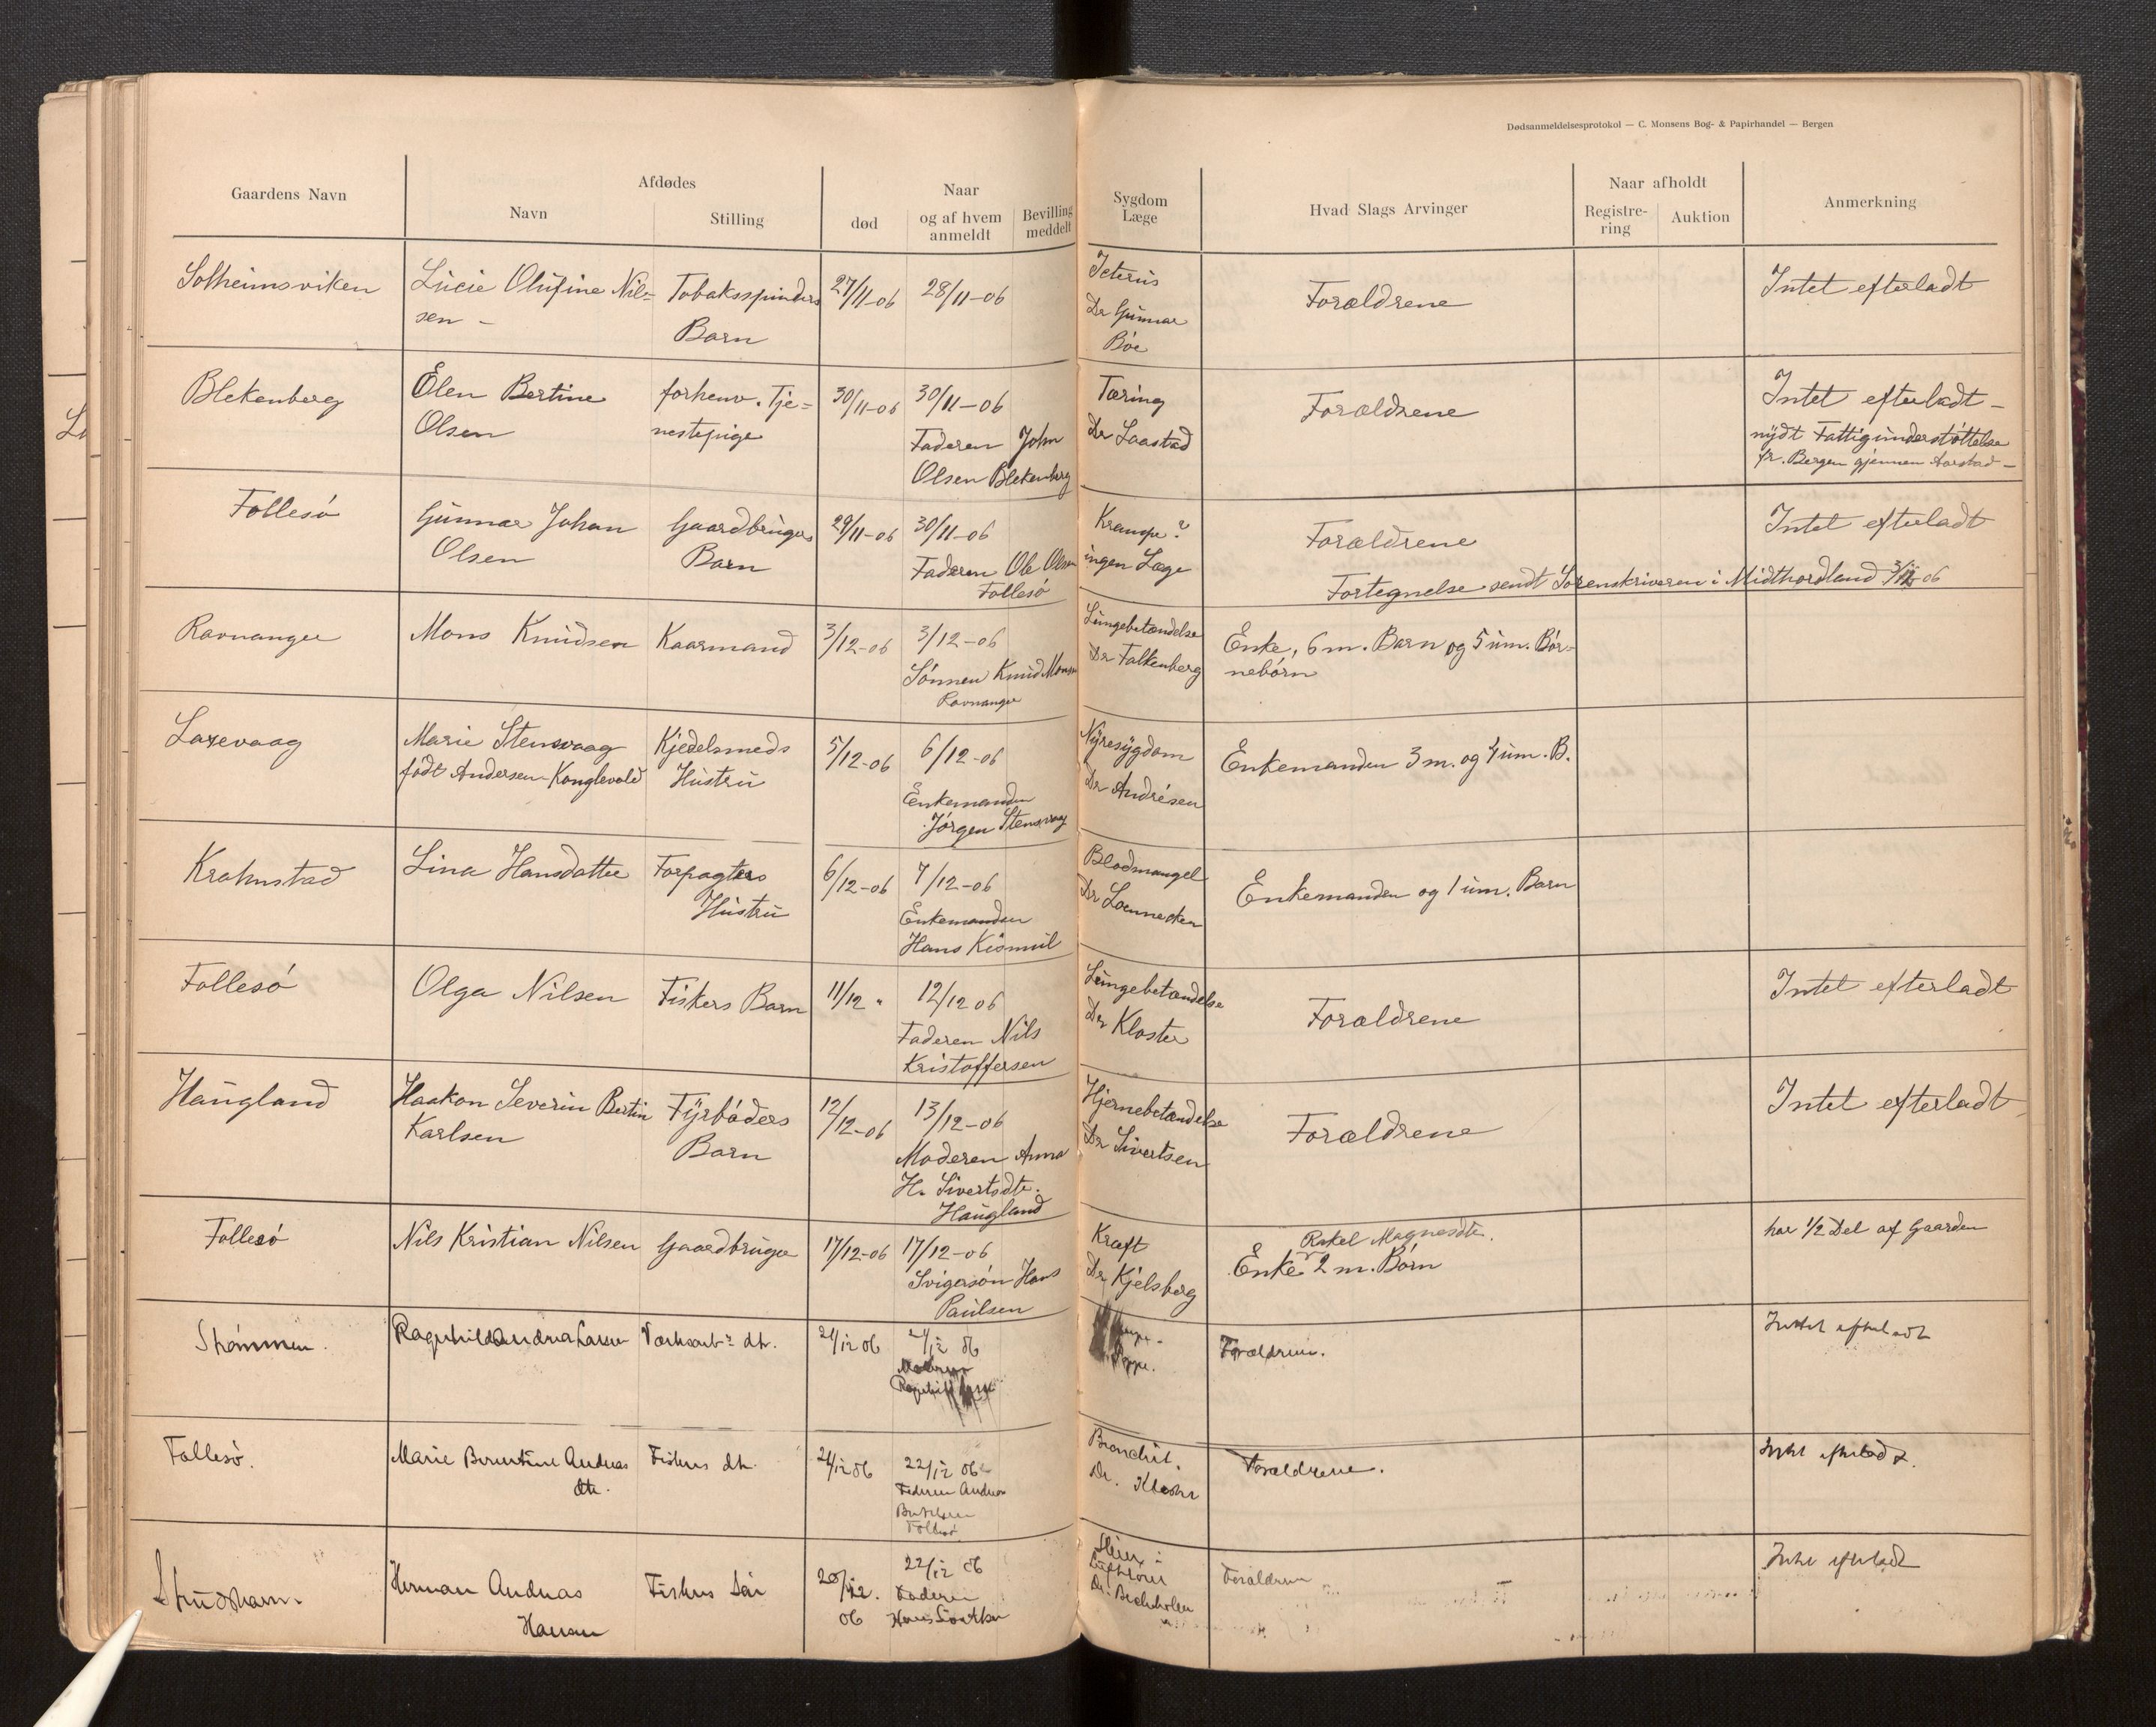 Dødsanmeldelsesprotokol — C. Monsens Bog- & Papirhandel — Bergen
Gaardens Navn
Afdødes
Navn
Stilling
død
Naar
og af hvem
anmeldt
Bevilling
meddelt
Sygdom
Læge
Hvad Slags Arvinger
Naar afholdt
Registre-
ring
Auktion
Anmerkning
Solheimsviken
Lucie Olufine Nil=
sen -
Tobaksspinders
Barn
27/11-06
28/11-06
Icterus
Dr Gunnar
Böe
Forældrene
Intet efterladt
Blekenberg
Elen Bertine
Olsen
forhenv. Tje=
nestepige
30/11-06
30/11-06
Faderen John
Olsen Blekenberg
Tæring
Dr Laastad
Forældrene
Intet efterladt -
nydt Fattigunderstöttelse
fr. Bergen gjennem Aarstad -
Follesö
Gunnar Johan
Olsen
Gaardbrugers
Barn
29/11-06
30/11-06
Faderen Ole Olsen
Follesö
Krampe?
ingen Læge
Forældrene
Intet efterladt
Fortegnelse sendt Sorenskriveren i Midthordland 3/12-06
Ravnanger
Mons Knudsen
Kaarmand
3/12-06
3/12-06
Sönnen Knud Monsen
Ravnanger
Lungebetændelse
Dr Falkenberg
Enke, 6 m. Barn og 5 um. Bör=
nebörn
Laxevaag
Marie Stensvaag
födt Andersen-Konglevold
Kjedelsmeds
Hustru
5/12-06
6/12-06
Enkemanden
Jörgen Stensvaag
Nyresygdom
Dr Andrésen
Enkemanden 3 m. og 4 um. B.
Krohnstad
Lina Hansdatter
Forpagters
Hustru
6/12-06
7/12-06
Enkemanden
Hans Kismul
Blodmangel
Dr Loennecken
Enkemanden og 1 um. Barn
Follesö
Olga Nilsen
Fiskers Barn
11/12 "
12/12 06
Faderen Nils
Kristoffersen
Lungebetændelse
Dr Kloster
Forældrene
Intet efterladt
Haugland
Haakon Severin Bertin
Karlsen
Fyrböders
Barn
12/12-06
13/12-06
Moderen Anna
H. Sivertsdtr.
Haugland
Hjernebetændelse
Dr Sivertsen
Forældrene
Intet efterladt
Follesö
Nils Kristian Nilsen
Gaardbruger
17/12-06
17/12-06
Svigersön Hans
Paulsen
Kræft
Dr Kjelsberg
Rakel Magnesdtr.
Enke 2 m. Börn
har 1/2 Del af Gaarden
Strömmen.
Ragnhild Andrea Larsen
dtr.
21/12 06
21/12 06
Forældrene.
Intet efterladt
Follesö.
Marie Berentine Andreas
dtr.
Fiskers dtr.
21/12 06
22/12 06
Faderen Andreas
Follesö
Bronchit.
Dr. Kloster
Forældrene.
Intet efterladt.
Herman Andreas
Hansen
Fiskers Sön
20/12.
06
22/12 06
Faderen
Dr.
Forældrene
Intet efterladt